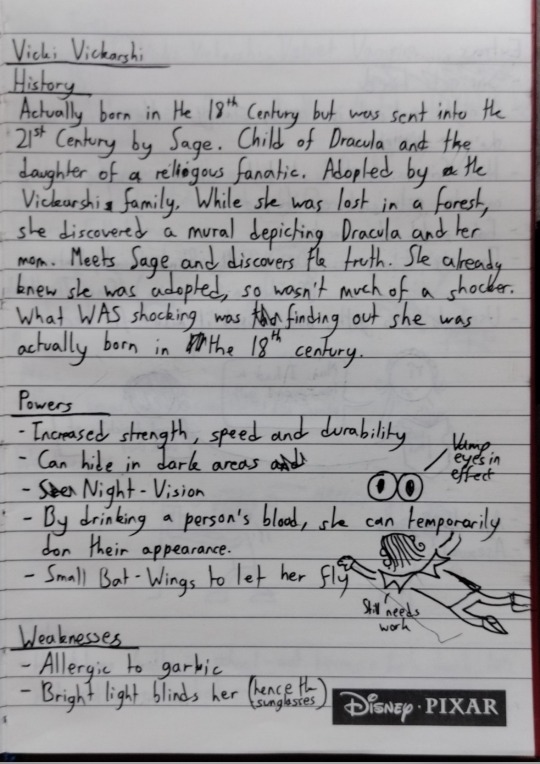 Vicki Vickarshi
History
Actually born in the 18th Century but was sent into the
21st Century by Sage. Child of Dracula and the
daughter of a religous fanatic. Adopted by the
Vickarshi family. While she was lost in a forest,
she discovered a mural depicting Dracula and her
mom. Meets Sage and discovers the truth. She already
knew she was adopted, so wasn't much of a shocker.
What WAS shocking was finding out she was
actually born in the 18th century.
Powers
- Increased strength, speed and durability
- Can hide in dark areas
- Night-Vision
Vamp
eyes in
effect
- By drinking a person's blood, she can temporarily
don their appearance.
- Small Bat-Wings to let her fly
Still needs
work
Weaknesses
- Allergic to garlic
- Bright light blinds her (hence the
sunglasses)
DISNEY · PIXAR